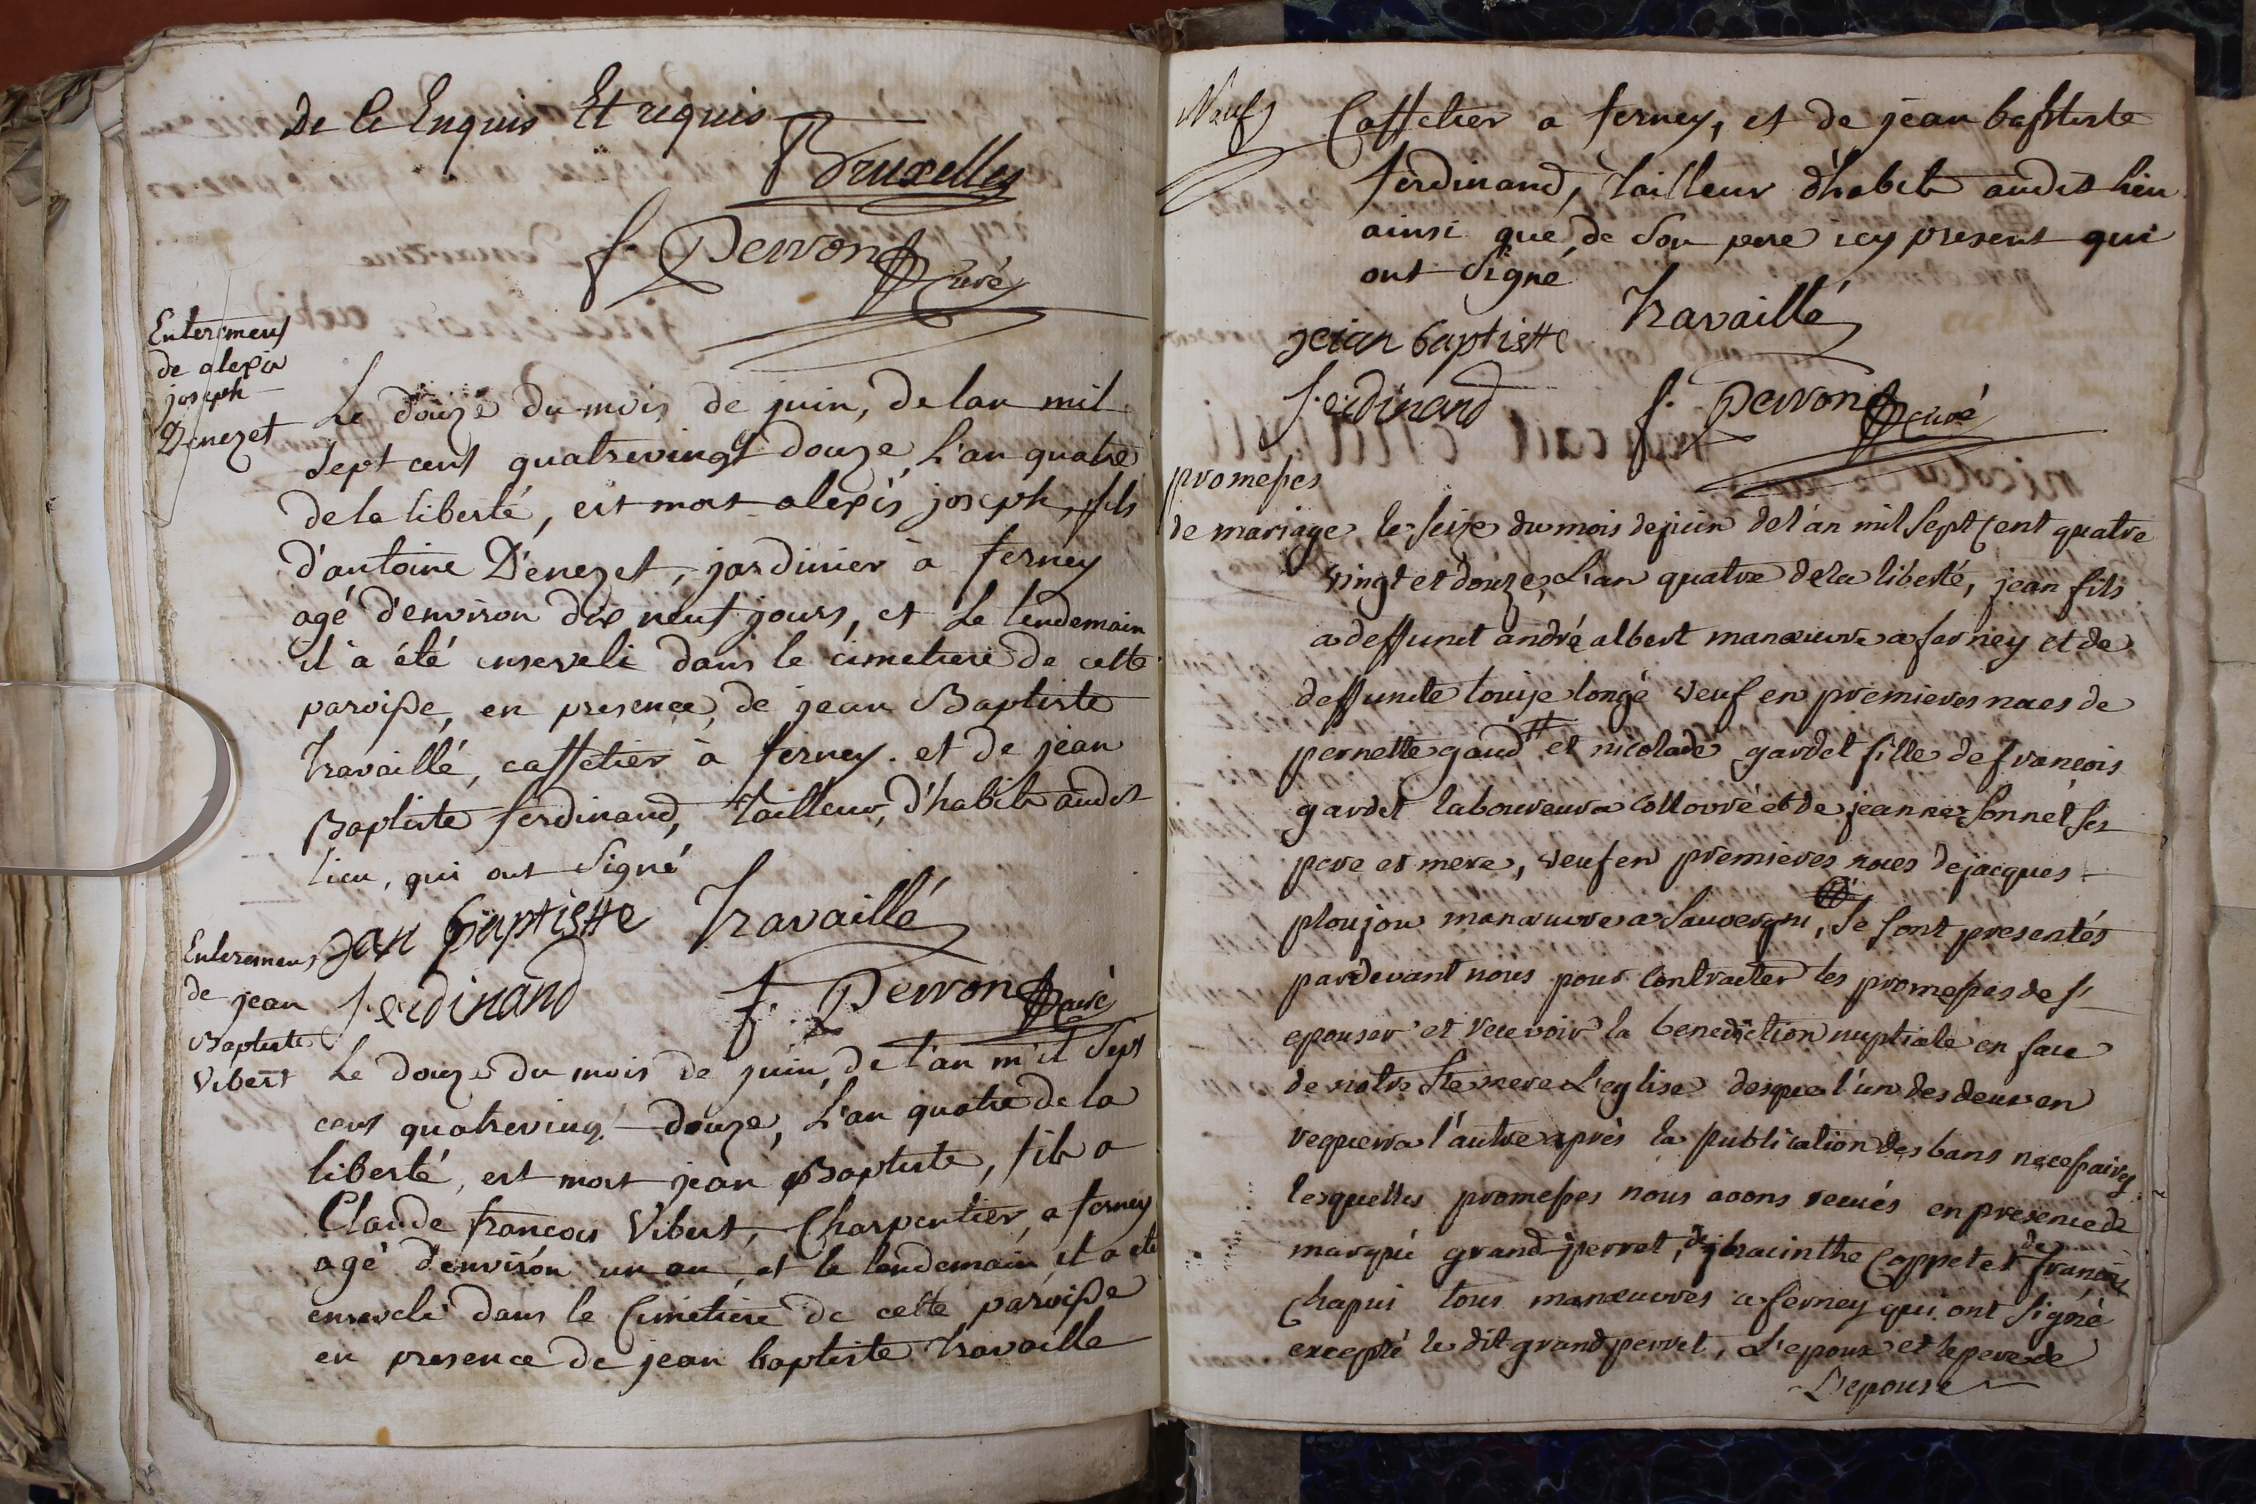 De Ce Enquis Et requis
Bruxelles
f. Perron Curé
Enterement
de alexis
joseph
Denezet
Le douze du mois de juin, de lan mil
Sept cent quatrevingt douze, L'an quatre
de la liberté, est mort alexis joseph, fils
d'antoine Dénezet, jardinier à ferney
agé d'environ dix neuf jours, et Le lendemain
il a été enseveli dans le cimetiere de cette
paroisse, en presence, de jean Baptiste
Travaillé, caffetier à ferney. et de jean
Baptiste ferdinand, Tailleur, d'habits audit
lieu, qui ont Signé
jan baptiste Travaillé
ferdinand f. Perron Curé
Enterement
de jean
Baptiste
Vibert
Le douze du mois de juin de l'an mil Sept
cent quatrevingt douze, L'an quatre de la
liberté, est mort jean Baptiste, fils a
Claude francois Vibert, Charpentier, a ferney
agé d'environ un an, et le lendemain il a eté
enseveli dans le Cimetiere de cette paroisse
en presence de jean baptiste Travaillé
Neuf
Caffetier a ferney, et de jean baptiste
ferdinand, Tailleur d'habits audit lieu
ainsi que de Son pere icy present qui
ont Signé
jeian baptiste Travaillé
ferdinand f. Perron Curé
promesses
de mariage le seize du mois de juin de l'an mil Sept Cent quatre
vingt et douze, L'an quatre de la liberté, jean fils
a deffunct andré albert manœuvre a ferney et de
deffuncte louise longe veuf en premieres noces de
pernette gaud et nicolade gardet fille de francois
gardet laboureur a Collovré et de jeanne Sonnet ses
pere et mere, veuf en premieres noces de jacques
ploujon manœuvre a Sauvergni, Se sont presentés
pardevant nous pour Contracter les promesses de s'
epouser et recevoir la benediction nuptiale en face
de notre Ste mere L'eglise desque l'un des deux en
requerra l'autre après la publication des bans necessaires
lesquelles promesses nous avons recues en presence de
marquë grand perret, de jhiacinthe Coppet et de françois
Chapui tous manœuvres a ferney qui ont signé
excepté le dit grand perret, L'epoux et le pere de
L'epouse